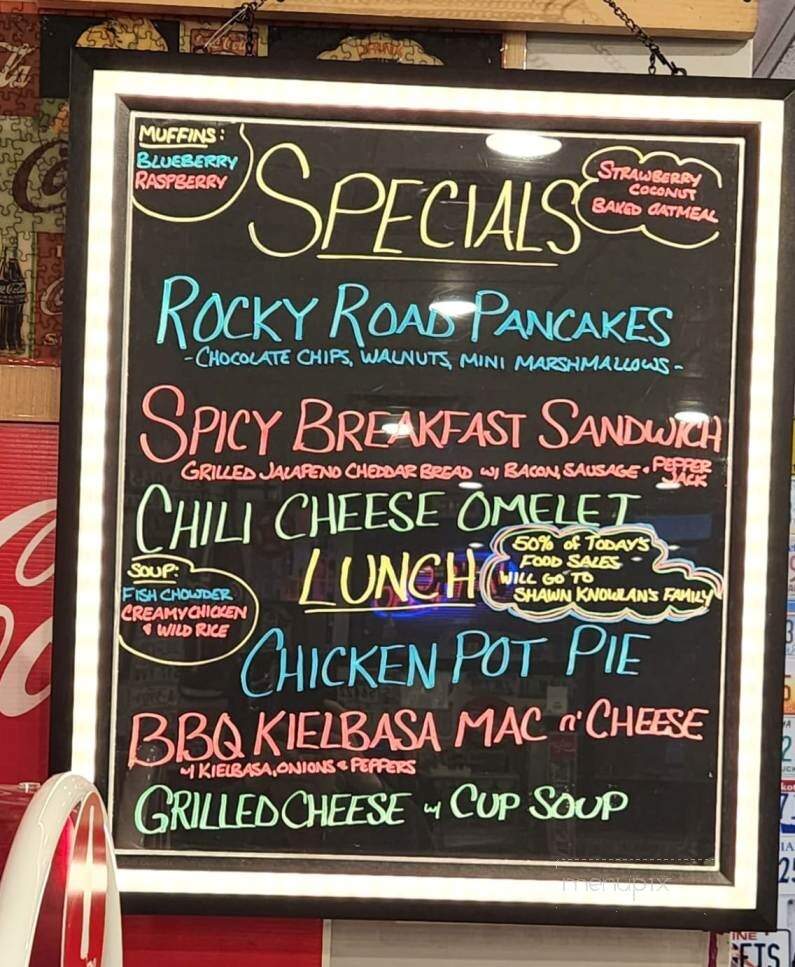 MUFFINS:
BLUEBERRY
RASPBERRY
SPECIALS
STRAWBERRY
COCONUT
BAKED OATMEAL
ROCKY ROAD PANCAKES
- CHOCOLATE CHIPS, WALNUTS, MINI MARSHMALLOWS -
SPICY BREAKFAST SANDWICH
GRILLED JALAPENO CHEDDAR BREAD w/ BACON, SAUSAGE & PEPPER
JACK
CHILI CHEESE OMELET
LUNCH
50% of TODAY'S
FOOD SALES
WILL GO TO
SHAWN KNOWLAN'S FAMILY
SOUP:
FISH CHOWDER
CREAMY CHICKEN
& WILD RICE
CHICKEN POT PIE
BBQ KIELBASA MAC n' CHEESE
w/ KIELBASA, ONIONS & PEPPERS
GRILLED CHEESE w/ CUP SOUP
menupix